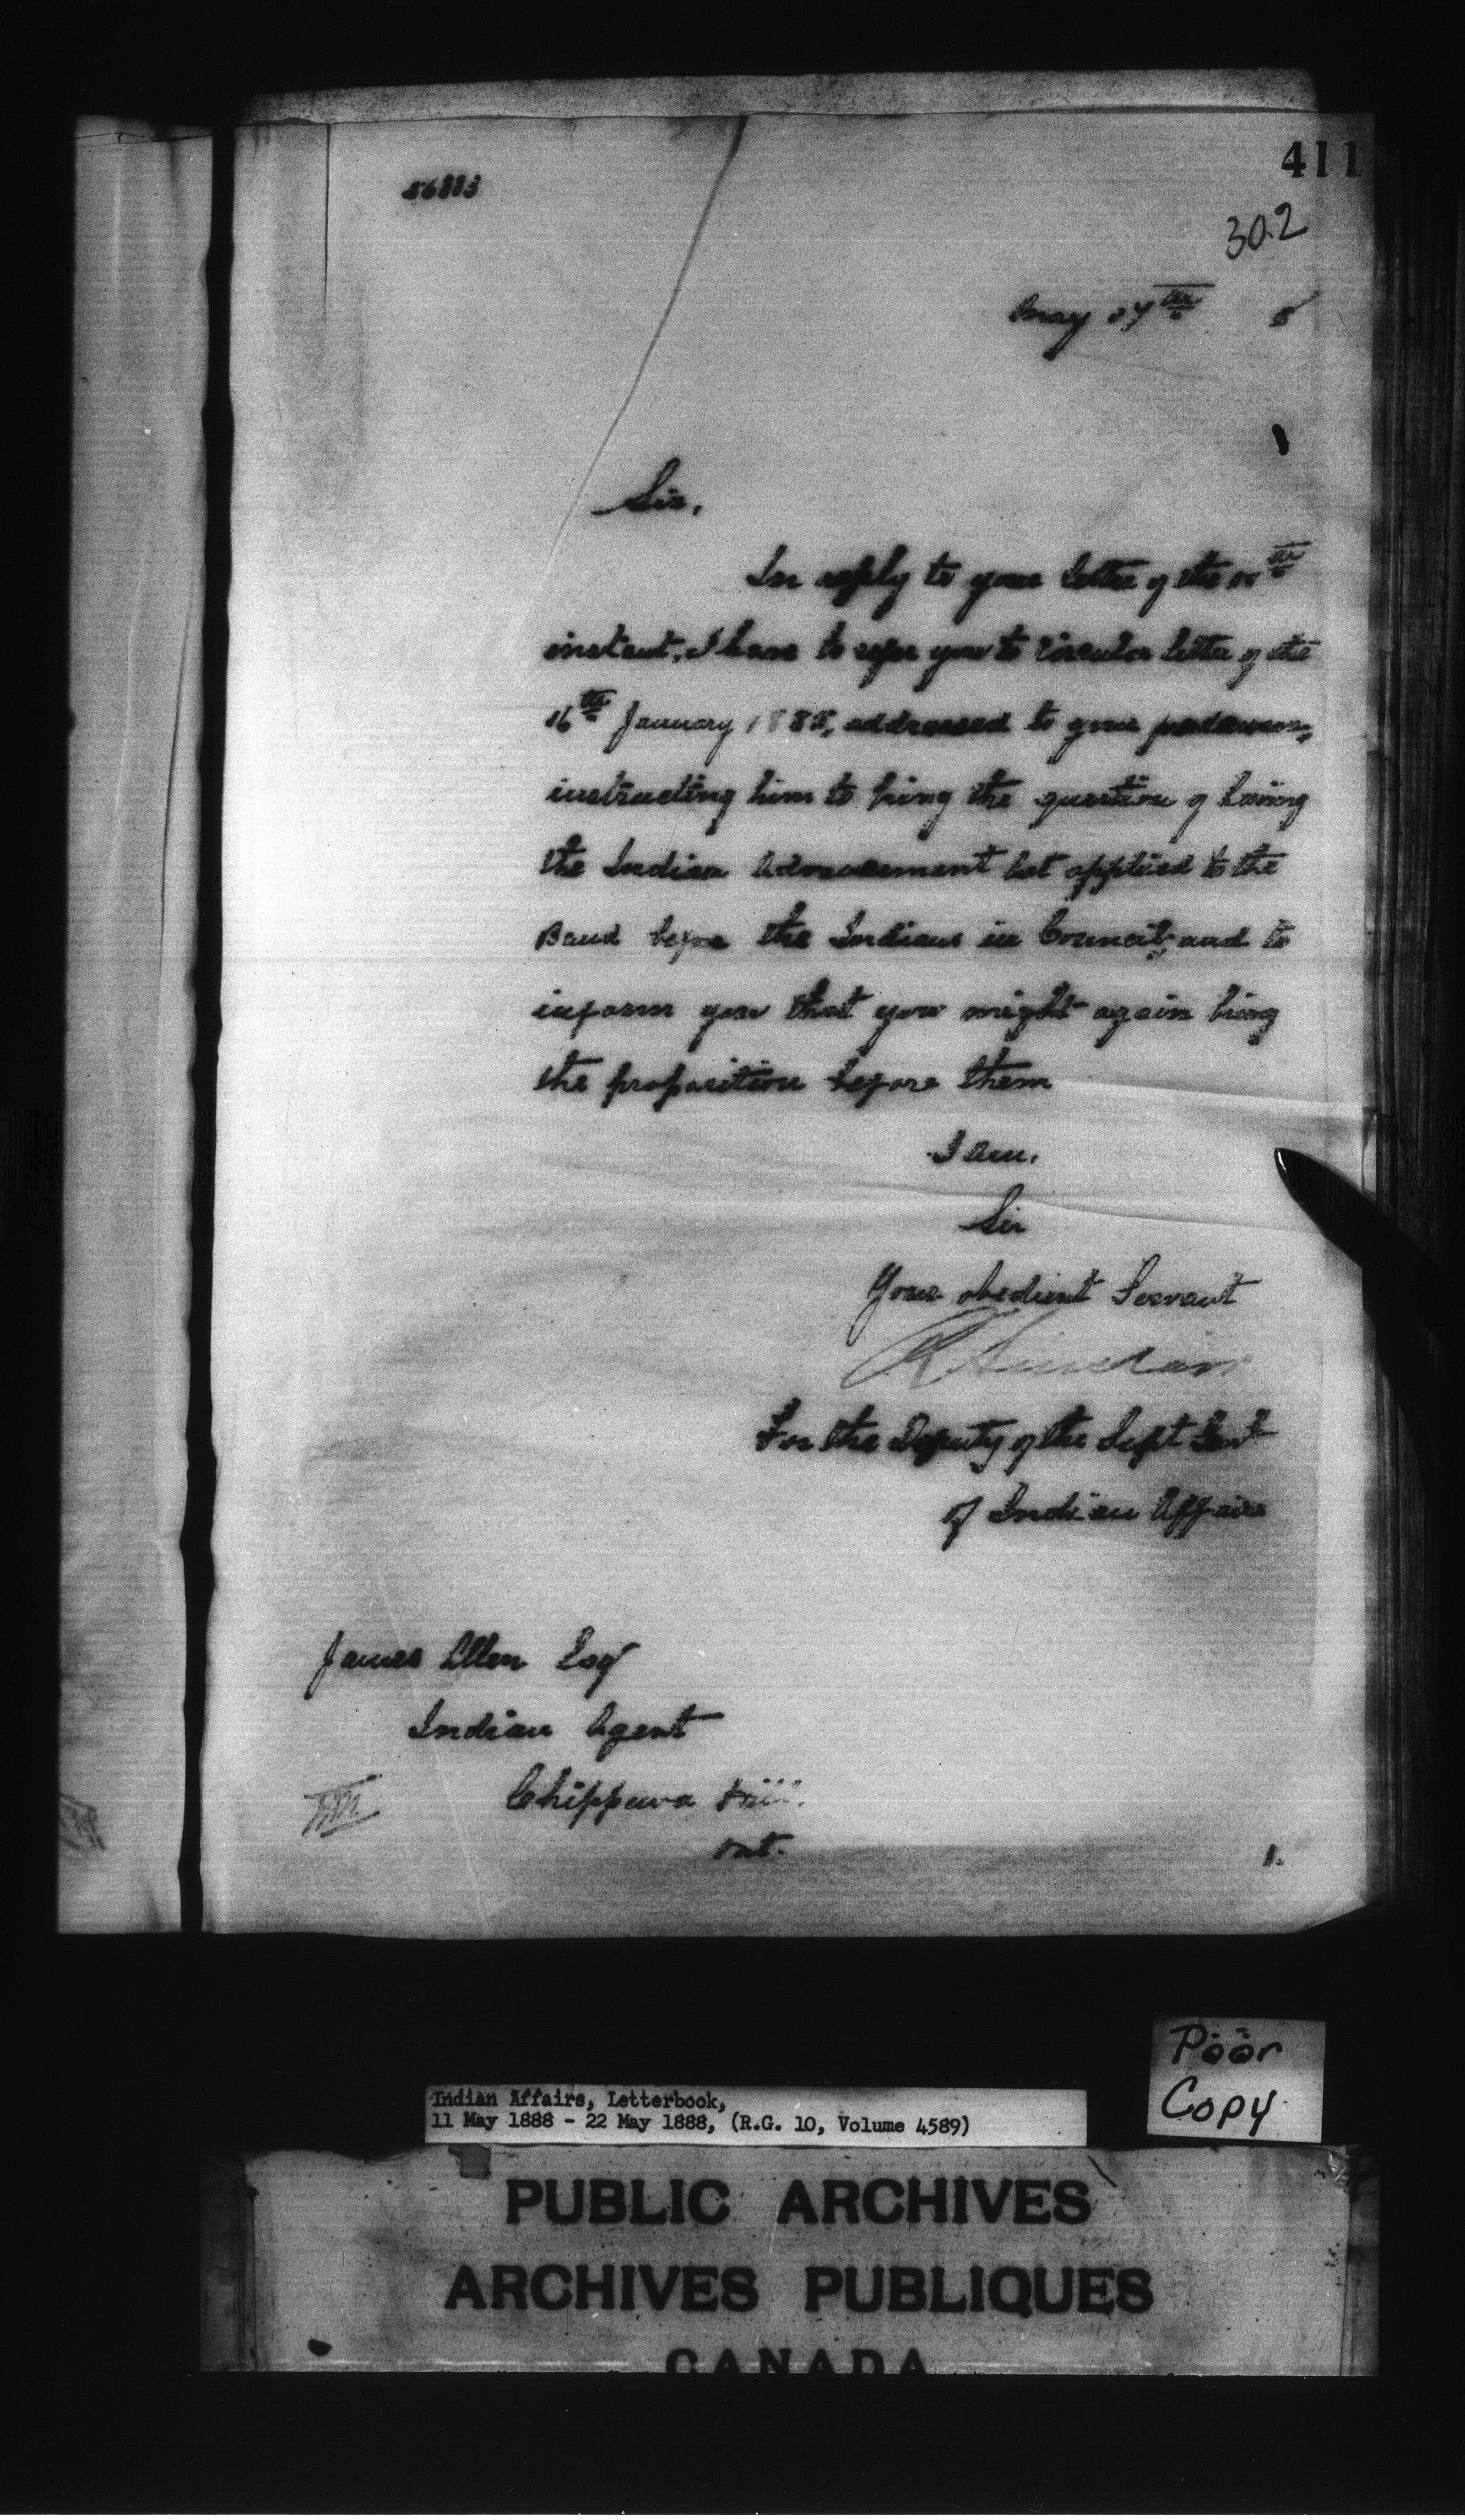 411
302
May 17th 8
Sir,
In reply to your letter of the
instant, I have to refer you to circular letter of the
16th January 1885, addressed to your predecessor,
instructing him to bring the question of having
the Indian Advancement Act applied to the
Band before the Indians in Council, and to
inform you that you might again bring
the proposition before them
I am,
Sir
Your obedient Servant
R Sinclair
For the Deputy of the Supt Genl
of Indian Affairs
James Allen Esq
Indian Agent
Chippewa Hill.
Ont.
1.
Poor
Copy
Indian Affairs, Letterbook,
11 May 1888 - 22 May 1888, (R.G. 10, Volume 4589)
PUBLIC ARCHIVES
ARCHIVES PUBLIQUES
CANADA